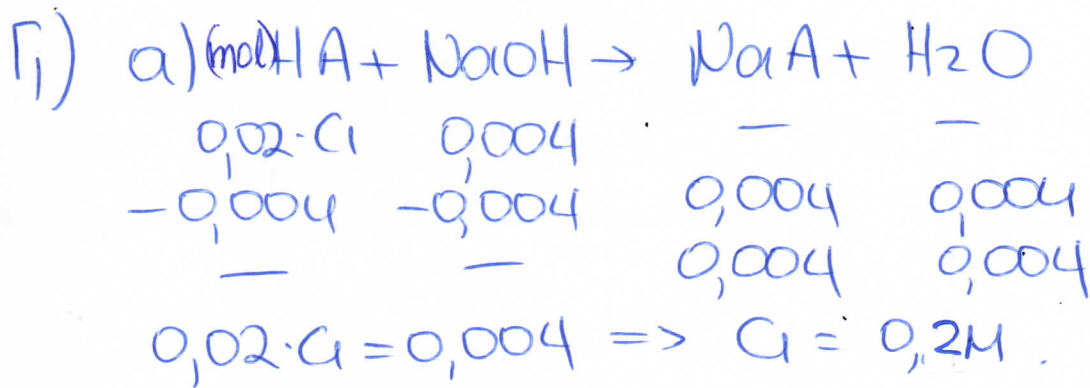 Γ1) α) (mol) HA + NaOH → NaA + H2O
0,02·C1 0,004 — —
-0,004 -0,004 0,004 0,004
— — 0,004 0,004
0,02·C1 = 0,004 => C1 = 0,2M.